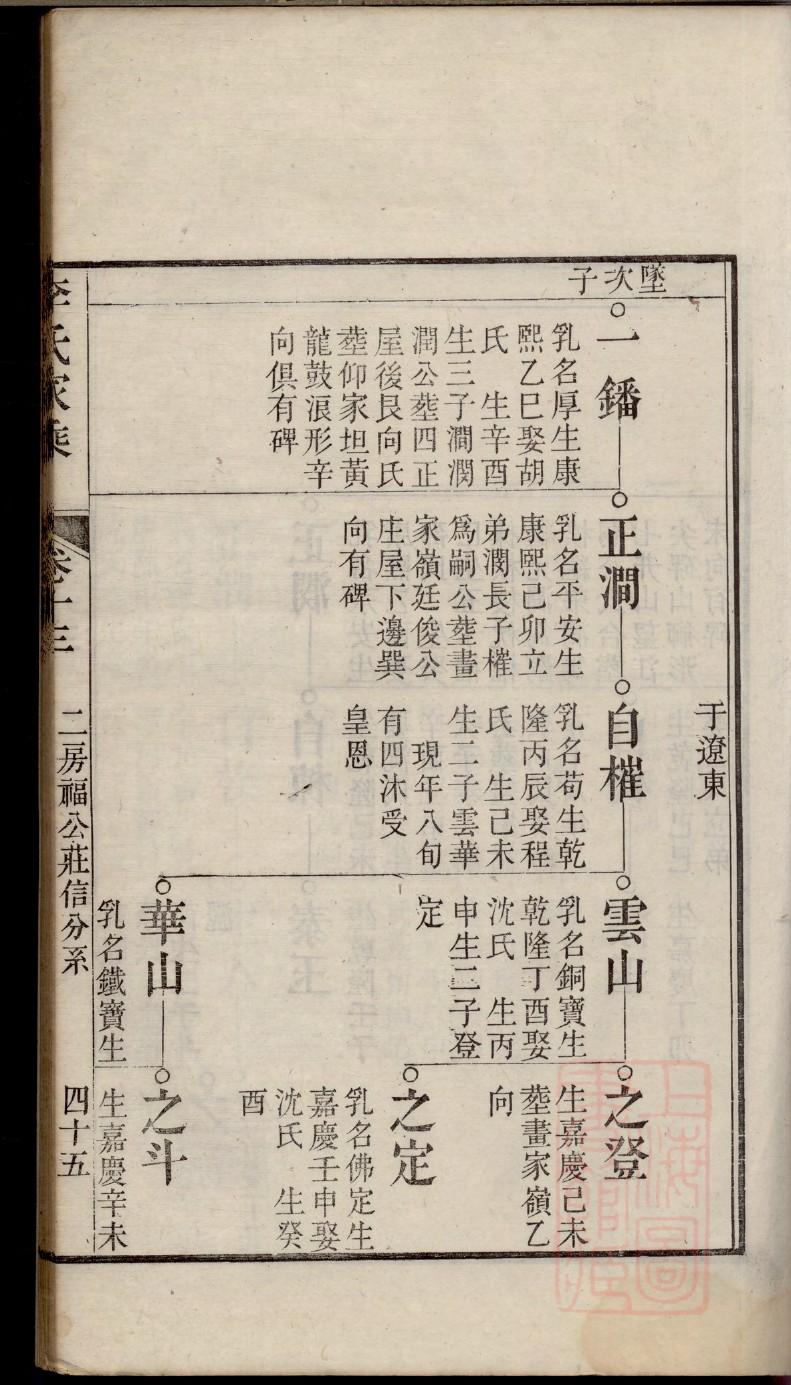 墜次子
于遼東
一鐇
乳名厚生康
熙乙巳娶胡
氏　生辛酉
生三子澗潤
潤公塟四正
屋後艮向氏
塟仰家坦黄
龍鼓浪形辛
向俱有碑
正澗
乳名平安生
康熙己卯立
弟潤長子槯
為嗣公塟畫
家嶺廷俊公
庄屋下邊巽
向有碑
自槯
乳名苟生乾
隆丙辰娶程
氏　生己未
生二子雲華
現年八旬
有四沐受
皇恩
雲山
乳名銅寶生
乾隆丁酉娶
沈氏　生丙
申生二子登
定
之登
生嘉慶己未
塟畫家嶺乙
向
之定
乳名佛定生
嘉慶壬申娶
沈氏　生癸
酉
華山
乳名鐵寶生
之斗
生嘉慶辛未
李氏家乘
卷十三
二房福公莊信分系
四十五